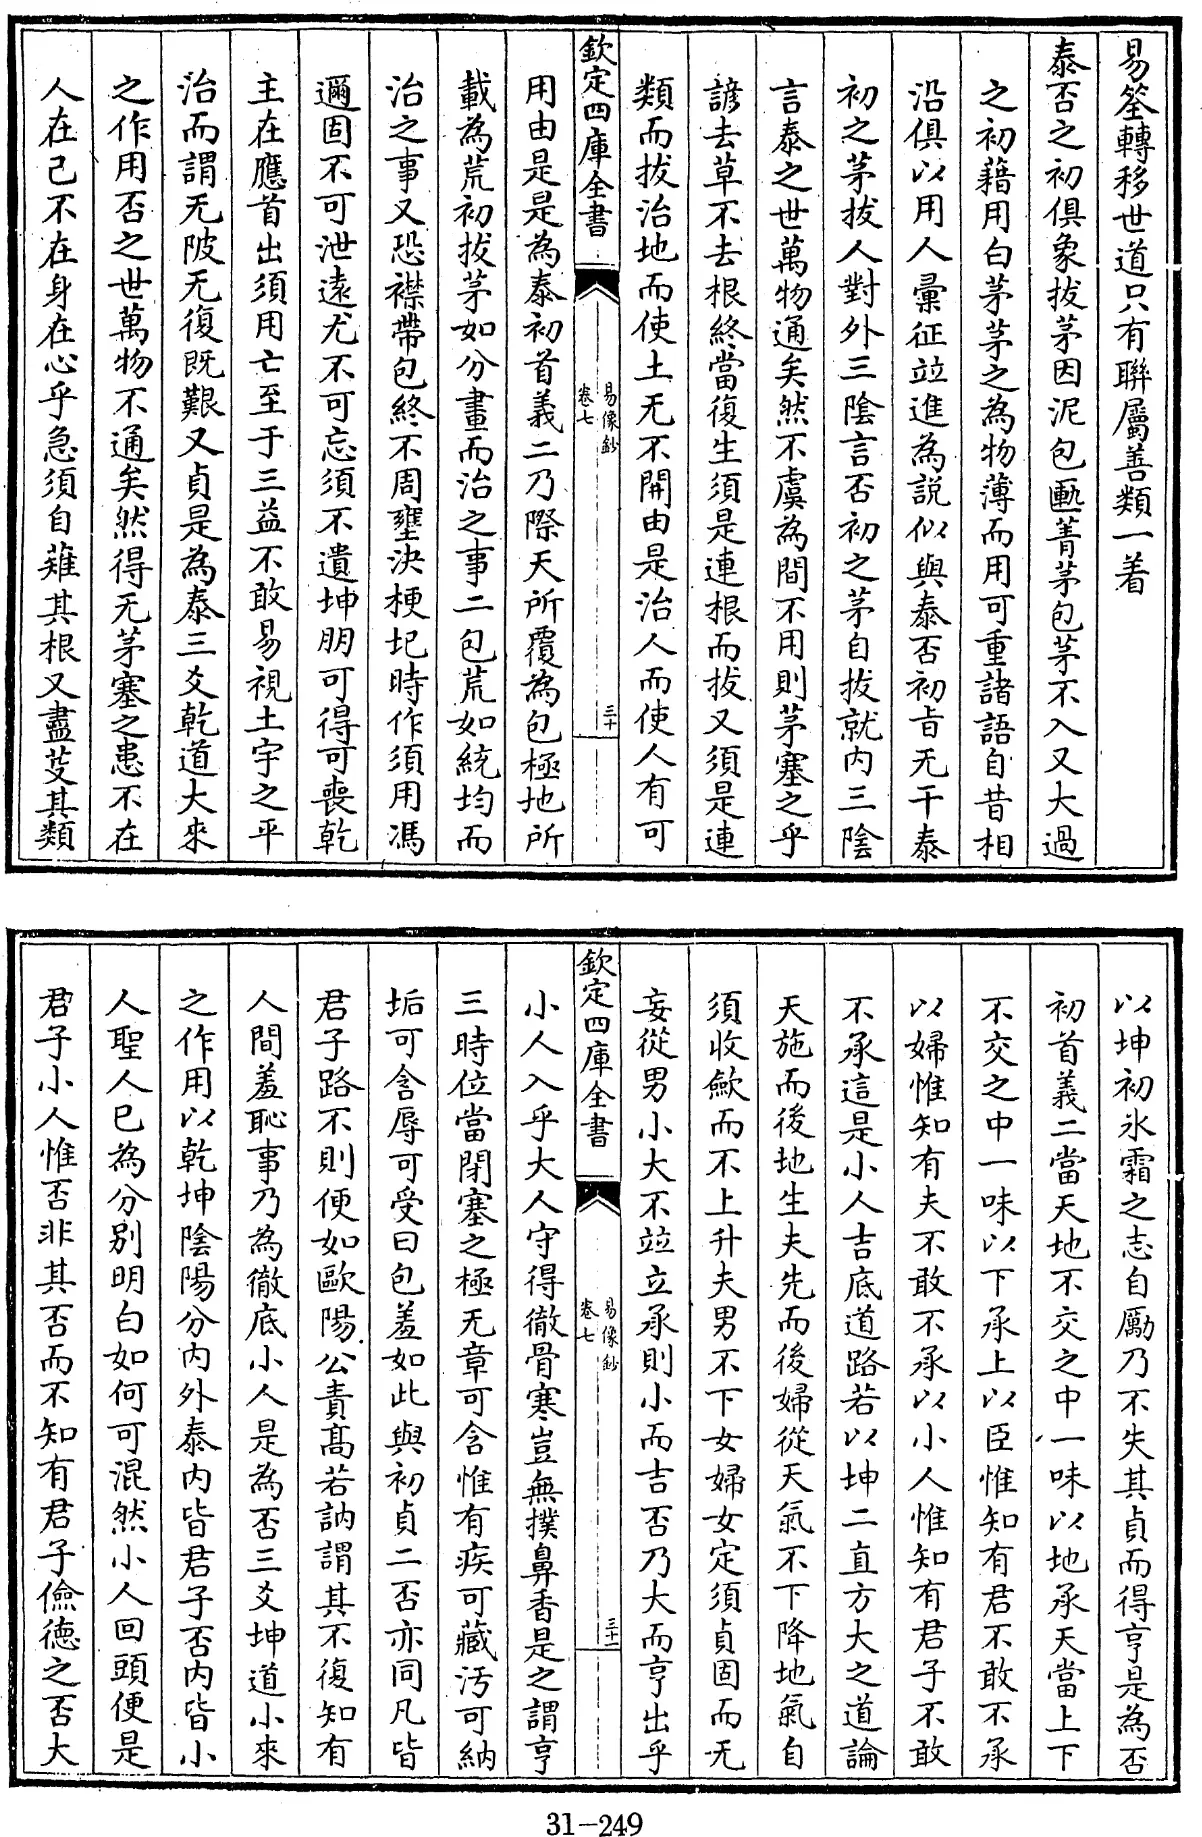 易筌轉移世道只有聯屬善類一着
泰否之初俱象拔茅因泥包匭菁茅包茅不入又大過
之初藉用白茅茅之為物薄而用可重諸語自昔相
沿俱以用人彙征並進為説似與泰否初旨无干泰
初之茅拔人對外三陰言否初之茅自拔就内三陰
言泰之世萬物通矣然不虞為間不用則茅塞之乎
諺去草不去根終當復生須是連根而拔又須是連
類而拔治地而使土无不開由是治人而使人有可
欽定四庫全書
易像鈔
卷七
三十
用由是是為泰初首義二乃際天所覆為包極地所
載為荒初拔茅如分畫而治之事二包荒如統均而
治之事又恐襟帶包終不周壅決梗圯時作須用馮
邇固不可泄遠尤不可忘須不遺坤朋可得可喪乾
主在應首出須用亡至于三益不敢易視土宇之平
治而謂无陂无復既艱又貞是為泰三爻乾道大來
之作用否之世萬物不通矣然得无茅塞之患不在
人在己不在身在心乎急須自薙其根又盡芟其類
以坤初氷霜之志自勵乃不失其貞而得亨是為否
初首義二當天地不交之中一味以地承天當上下
不交之中一味以下承上以臣惟知有君不敢不承
以婦惟知有夫不敢不承以小人惟知有君子不敢
不承這是小人吉底道路若以坤二直方大之道論
天施而後地生夫先而後婦從天氣不下降地氣自
須收斂而不上升夫男不下女婦女定須貞固而无
妄從男小大不並立承則小而吉否乃大而亨出乎
欽定四庫全書
易像鈔
卷七
三十一
小人入乎大人守得徹骨寒豈無撲鼻香是之謂亨
三時位當閉塞之極无章可含惟有疾可藏汚可納
垢可含辱可受曰包羞如此與初貞二否亦同凡皆
君子路不則便如歐陽公責髙若訥謂其不復知有
人間羞恥事乃為徹底小人是為否三爻坤道小來
之作用以乾坤陰陽分内外泰内皆君子否内皆小
人聖人已為分别明白如何可混然小人回頭便是
君子小人惟否非其否而不知有君子儉德之否大
31-249